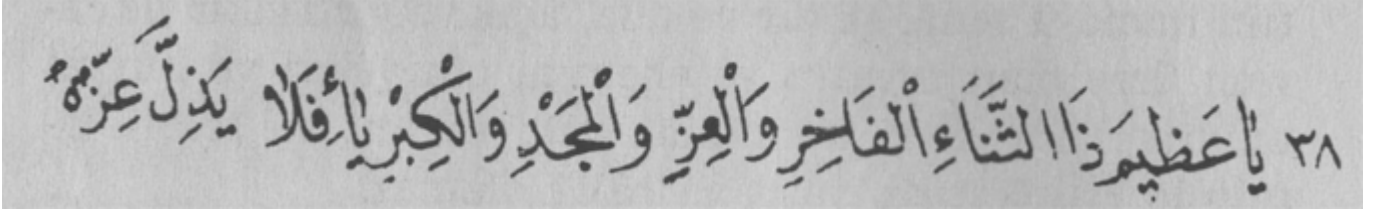 ٣٨ يَا عَظِيمَ ذَا الثَّنَاءِ الْفَاخِرِ وَالْعِزِّ وَالْمَجْدِ وَالْكِبْرِيَاءِ فَلَا يَذِلَّ عِزُّهُ